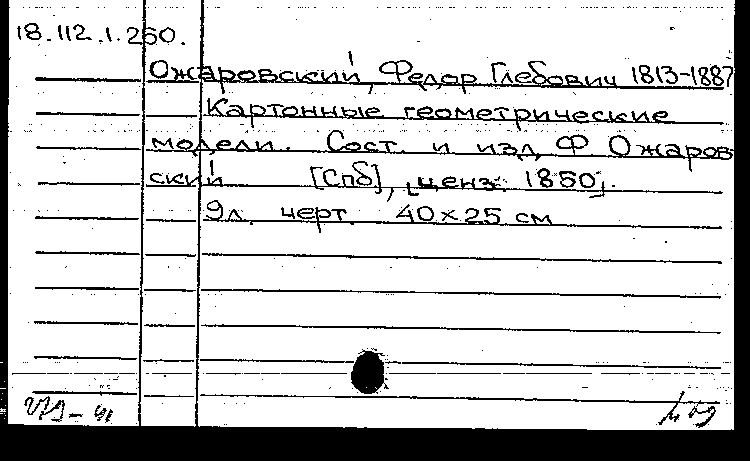 18.112.1.250.
Ожаровский, Федор Глебович 1813-1887
Картонные геометрические
модели. Сост. и изд. Ф Ожаров
ский [Спб], [ценз. 1850].
9л. черт. 40×25 см